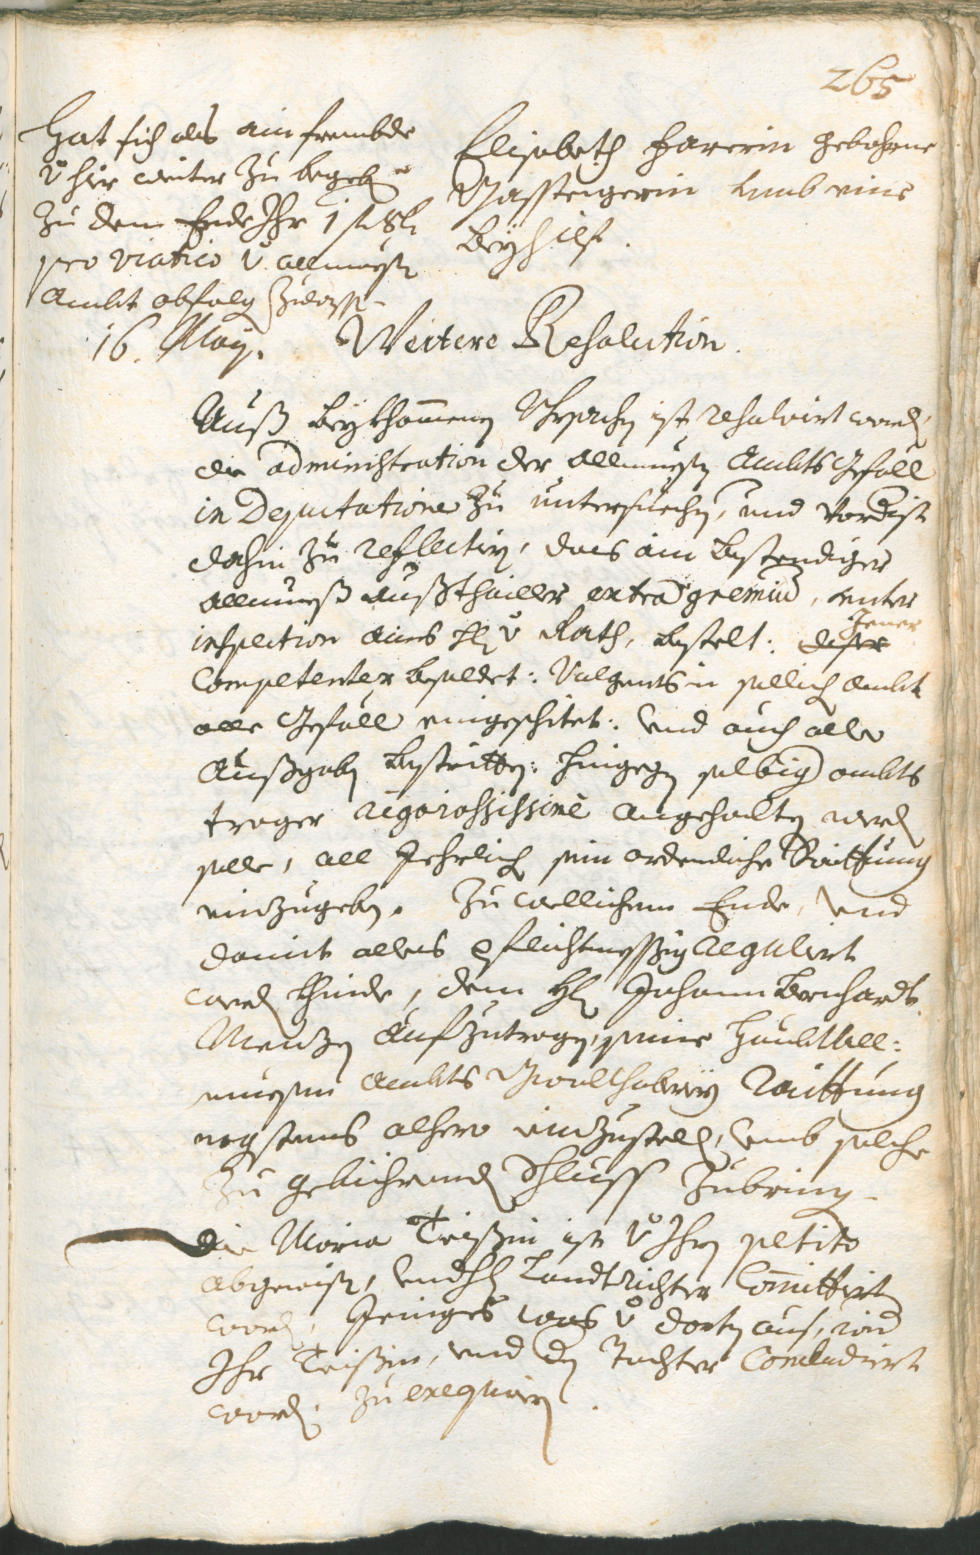 265
Hat sich als ein frembde
v̊ hir weiter zu begeben
zu dem Ende Ihr 1 f
pro viatico v̊ allmuesen
Ambt abfolg zulassen
Elisabeth Harerin gebohrne
Gassteigerin umb eine
Beyhilf.
16. May. Weitere Resolution.
Auß beykhommenen Ursachen ist resolvirt worden,
die administration der allmuesen Ambts Gefäll
in Deputatione zu untersuechen, und vordist
dahin zu reflectirn, das ain bestendiger
allmueß außthailler extra gremiũ, unter
inspection eines H: v̊ Rath, bestelt: diser
Jener
competenter besoldet: Volgents in sollich Ambt
alle Gefäll eingeschitet: und auch alle
Außgaben bestritten: hingegen selbig ambts
trager rigorosissime angehalten werden
solle, all Jehrlich sein ordenliche Raittung
einzugeben. Zu wellichem Ende, und
damit alles pflichtmessig regulirt
werden khinde, dem H: Johann Bernhardt
Menzen aufzutragen, seine haubt All:
muesen Ambts Gwalthaberey Raittung
negstens alhero einzustellen, umb solche
zu gebichrenden Schluss zubringen.
die Maria Teissin ist v̊ Ihren petito
abgewisen, und H: Landtrichter Committirt
worden, Jeniges was v̊ dorten aus, wid
Ihr Teissin, und den Tochter Concludiert
worden, zu exequiren.